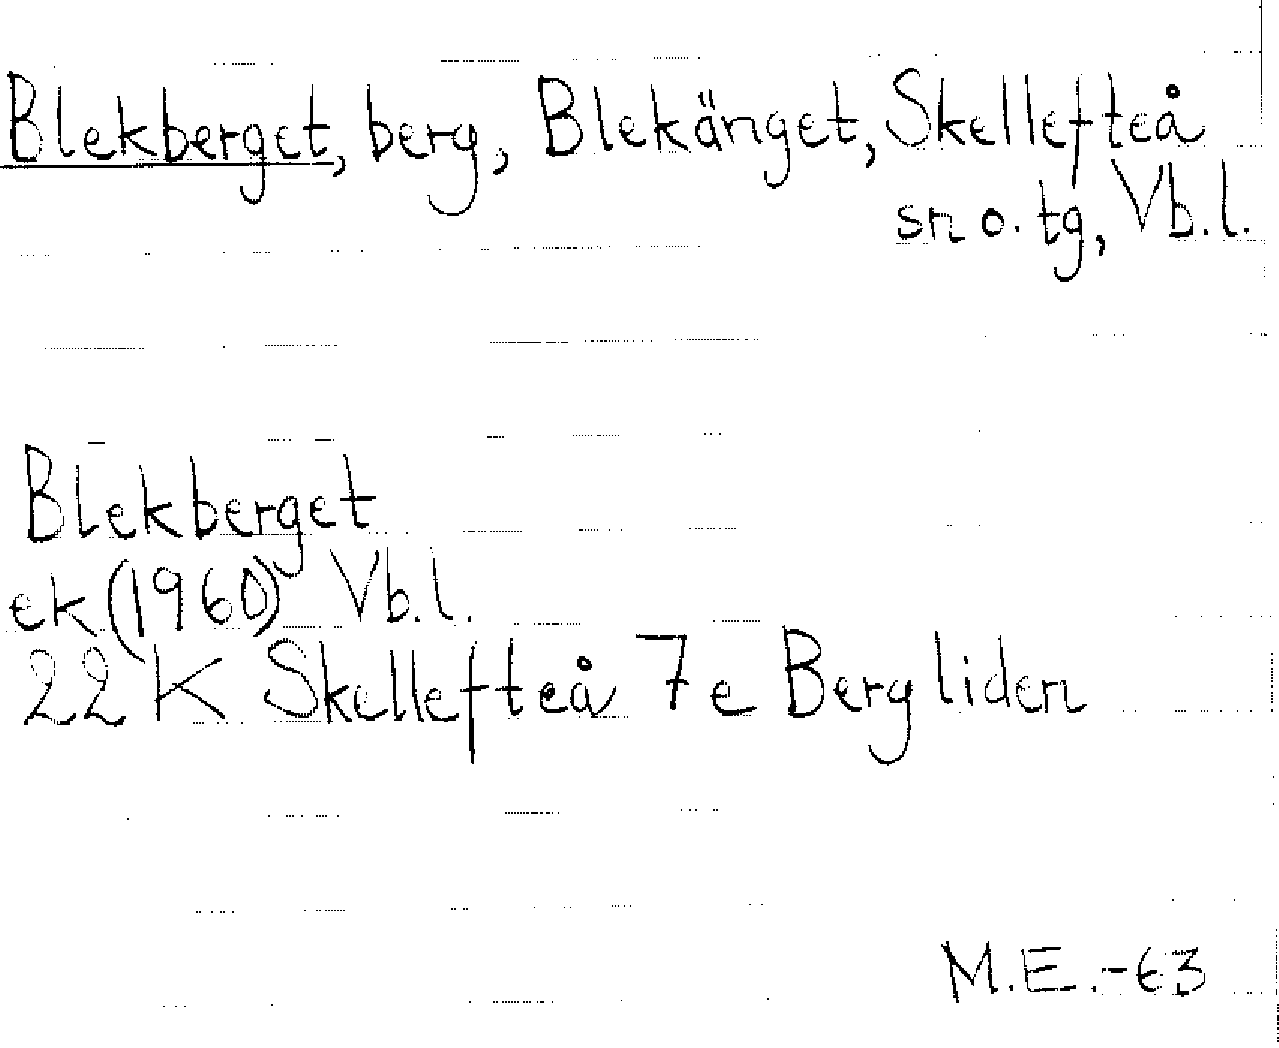 Blekberget, berg, Blekänget, Skellefteå
sn o. tg, Vb.l.
Blekberget
ek (1960) Vb.l.
22 K Skellefteå 7e Bergliden
M.E.-63